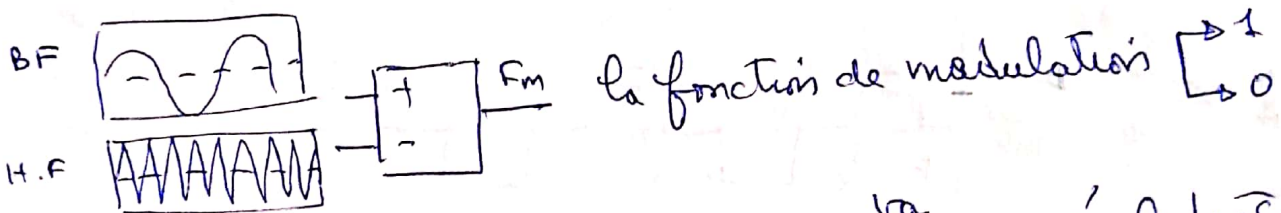 BF
+
-
Fm
la fonction de modulation
1
0
H.F